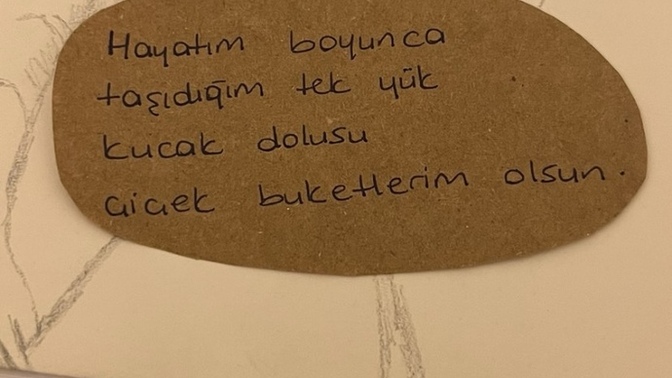 Hayatım boyunca
taşıdığım tek yük
kucak dolusu
çiçek buketlerim olsun.